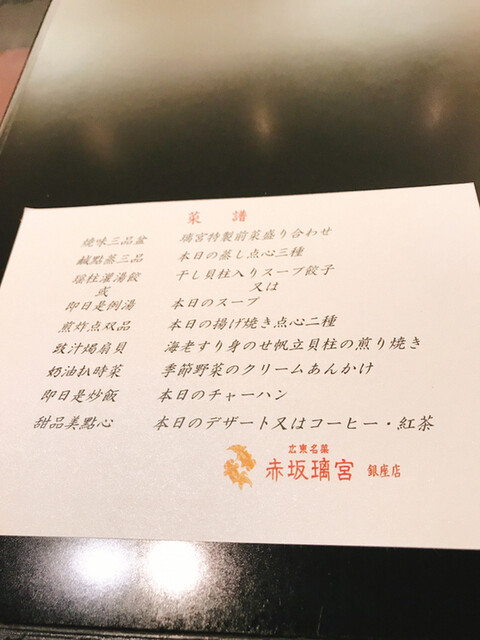 菜譜
燒味三品盆 璃宮特製前菜盛り合わせ
鹹點蒸三品 本日の蒸し点心三種
瑤柱灌湯餃 干し貝柱入りスープ餃子
或 又は
即日是例湯 本日のスープ
煎炸点双品 本日の揚げ焼き点心二種
豉汁焗扇貝 海老すり身のせ帆立貝柱の煎り焼き
奶油扒時菜 季節野菜のクリームあんかけ
即日是炒飯 本日のチャーハン
甜品美點心 本日のデザート又はコーヒー・紅茶
広東名菜
赤坂璃宮 銀座店